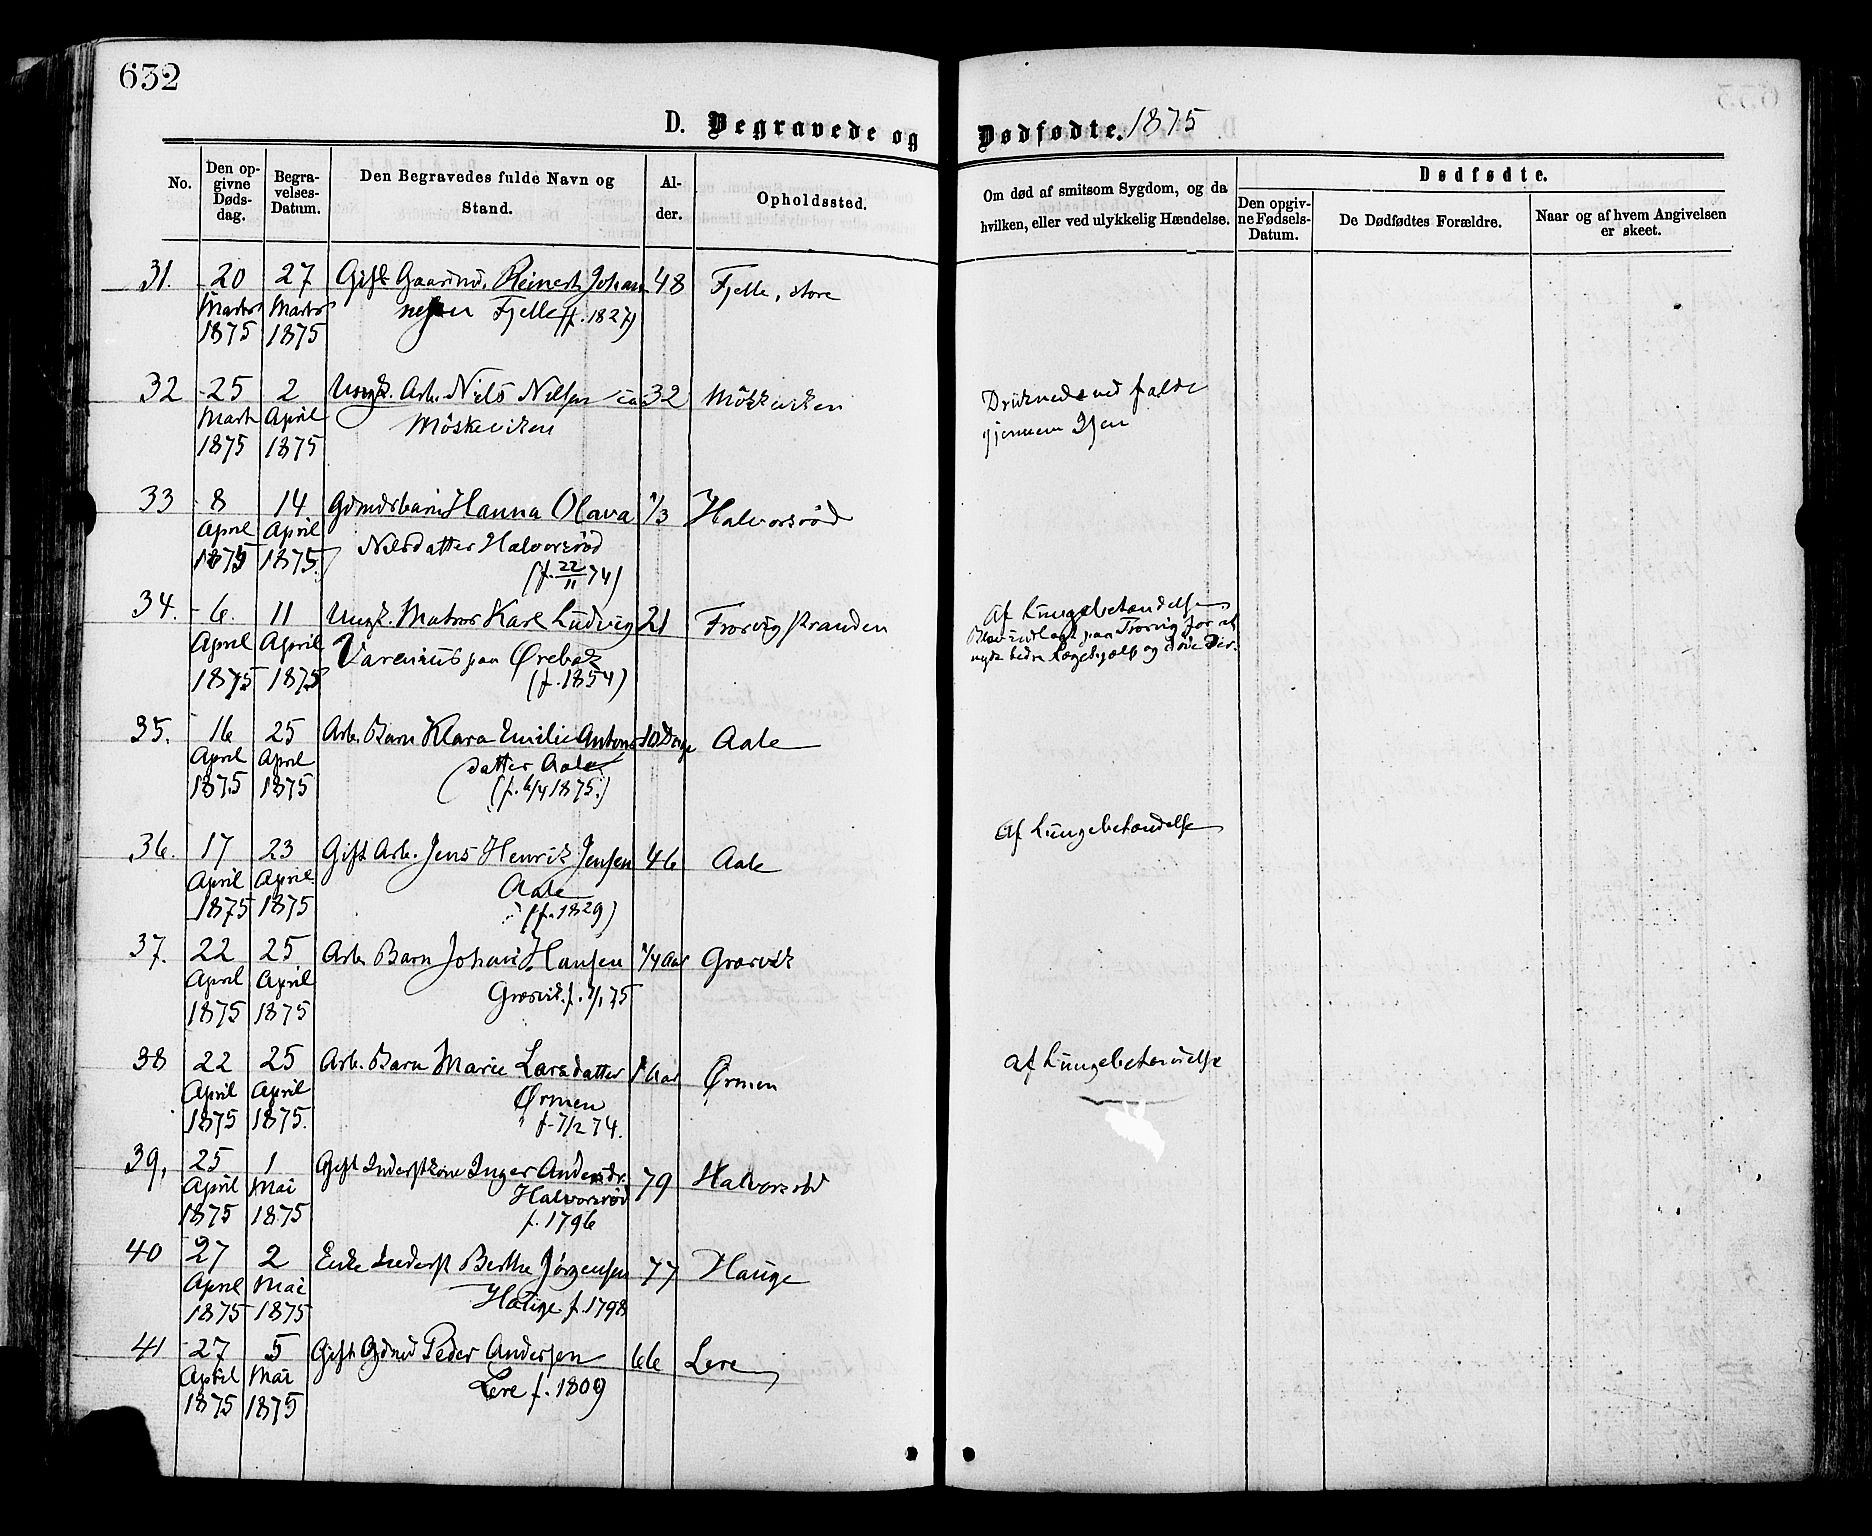 632
D. Begravede og Dødfødte. 1875
No.
Den opgivne Dødsdag.
Begravelses-Datum.
Den Begravedes fulde Navn og Stand.
Alder.
Opholdssted.
Om død af smitsom Sygdom, og da hvilken, eller ved ulykkelig Hændelse.
Dødfødte.
Den opgivne Fødsels-Datum.
De Dødfødtes Forældre.
Naar og af hvem Angivelsen er skeet.
31. 20 27 Gift Gaardmd. Reinert Johan 48 Fjelle, store
Marts Marts nesen Fjelle (f. 1827)
1875 1875
32 25 2 Ungk. Arb. Niels Nilsen ca 32 Möskeviken Druknede ved falde
Marts April Möskeviken gjennem Isen
1875 1875
33 8 14 Gdmdsbarn Hanna Olava 1/3 Halvorsröd
April April Nilsdatter Halvorsröd
1875 1875. (f. 22/11 74)
34. 6 11 Ungk. Matros Karl Ludvig 21 Trosvigstranden Af Lungebetændelse
April April Varenius paa Ørebæk Blev indlagt paa Trosvig for at
1875 1875 (f. 1854) nyde bedre Lægehjælp og døde der.
35. 16 25 Arb. Barn Klara Emilie Antons 10 Dage Aale
April April datter Aale
1875 1875 (f. 6/4 1875.)
36. 17 23 Gift Arb. Jens Henrik Jensen 46 Aale Af Lungebetændelse
April April Aale
1875 1875 (f. 1829)
37. 22 25 Arb. Barn Johan Hansen 1/4 Aar Græsvik
April April Græsvik. f. /1 75
1875 1875
38 22 25 Arb. Barn Marie Larsdatter 1 Aar Ørmen Af Lungebetændelse
April April Ørmen
1875 1875. f. 7/2 74.
39, 25 1 Gift Inderstkone Inger Andersdr. 79 Halvorsröd
April Mai Halvorsröd
1875 1875 f. 1796
40 27 2 Enke Inderst Berthe Jørgensen 77 Hauge
April Mai Hauge f. 1798
1875 1875
41 27 5 Gift Gdmd Peder Andersen 66 Lere
April Mai Lere f. 1809
1875 1875